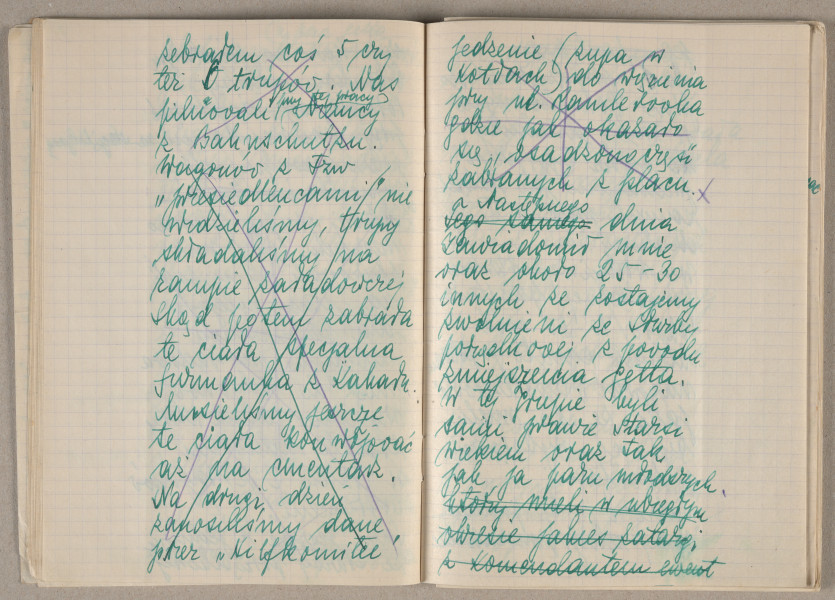 zebrałem coś 5 czy
też 6 trupów. Nas
pilnowali przy tej pracy Niemcy
z Bahnschutzu.
Wagonów z tzw
„przesiedleńcami" nie
widzieliśmy, trupy
składaliśmy na
rampie załadowczej
skąd potem zabrała
te ciała specjalna
furmanka z Zakładu.
Musieliśmy jeszcze
te ciała konwojować
aż na cmentarz.
Na drugi dzień
zanosiliśmy dane
przez „Hilfkomitee"
jedzenie (zupa w
kotłach) do więzienia
przy ul.
gdzie jak okazało
się, osadzono część
zabranych z placu. x
a następnego
tego samego dnia
Zawiadomił mnie
oraz około 25-30
innych że zostajemy
zwolnieni ze służby
porządkowej z powodu
zmniejszenia getta.
W tej grupie byli
sami prawie starsi
wiekiem oraz tak
jak ja paru młodszych,
którzy mieli w ubiegłym
okresie jakieś zatargi
z komendantem